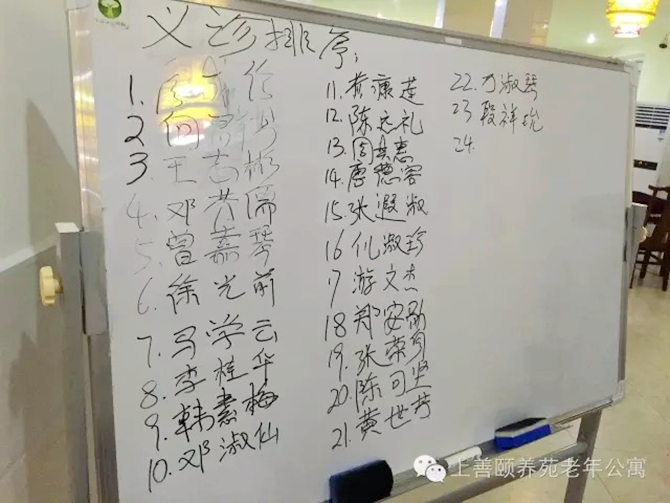 义诊排序:
1.
2 向
3. 王志彬
4. 邓芬儒
5. 曾嘉琴
6. 徐光前
7. 马学云
8. 李桂华
9. 韩素梅
10. 邓淑仙
11. 黄康莲
12. 陈志礼
13. 周
14. 唐德容
15. 张遐淑
16 仉淑珍
17 游文杰
18 郑安勋
19. 张荣
20. 陈可坚
21. 黄世芳
22. 淑琴
23 段祥
24.
上善颐养苑老年公寓